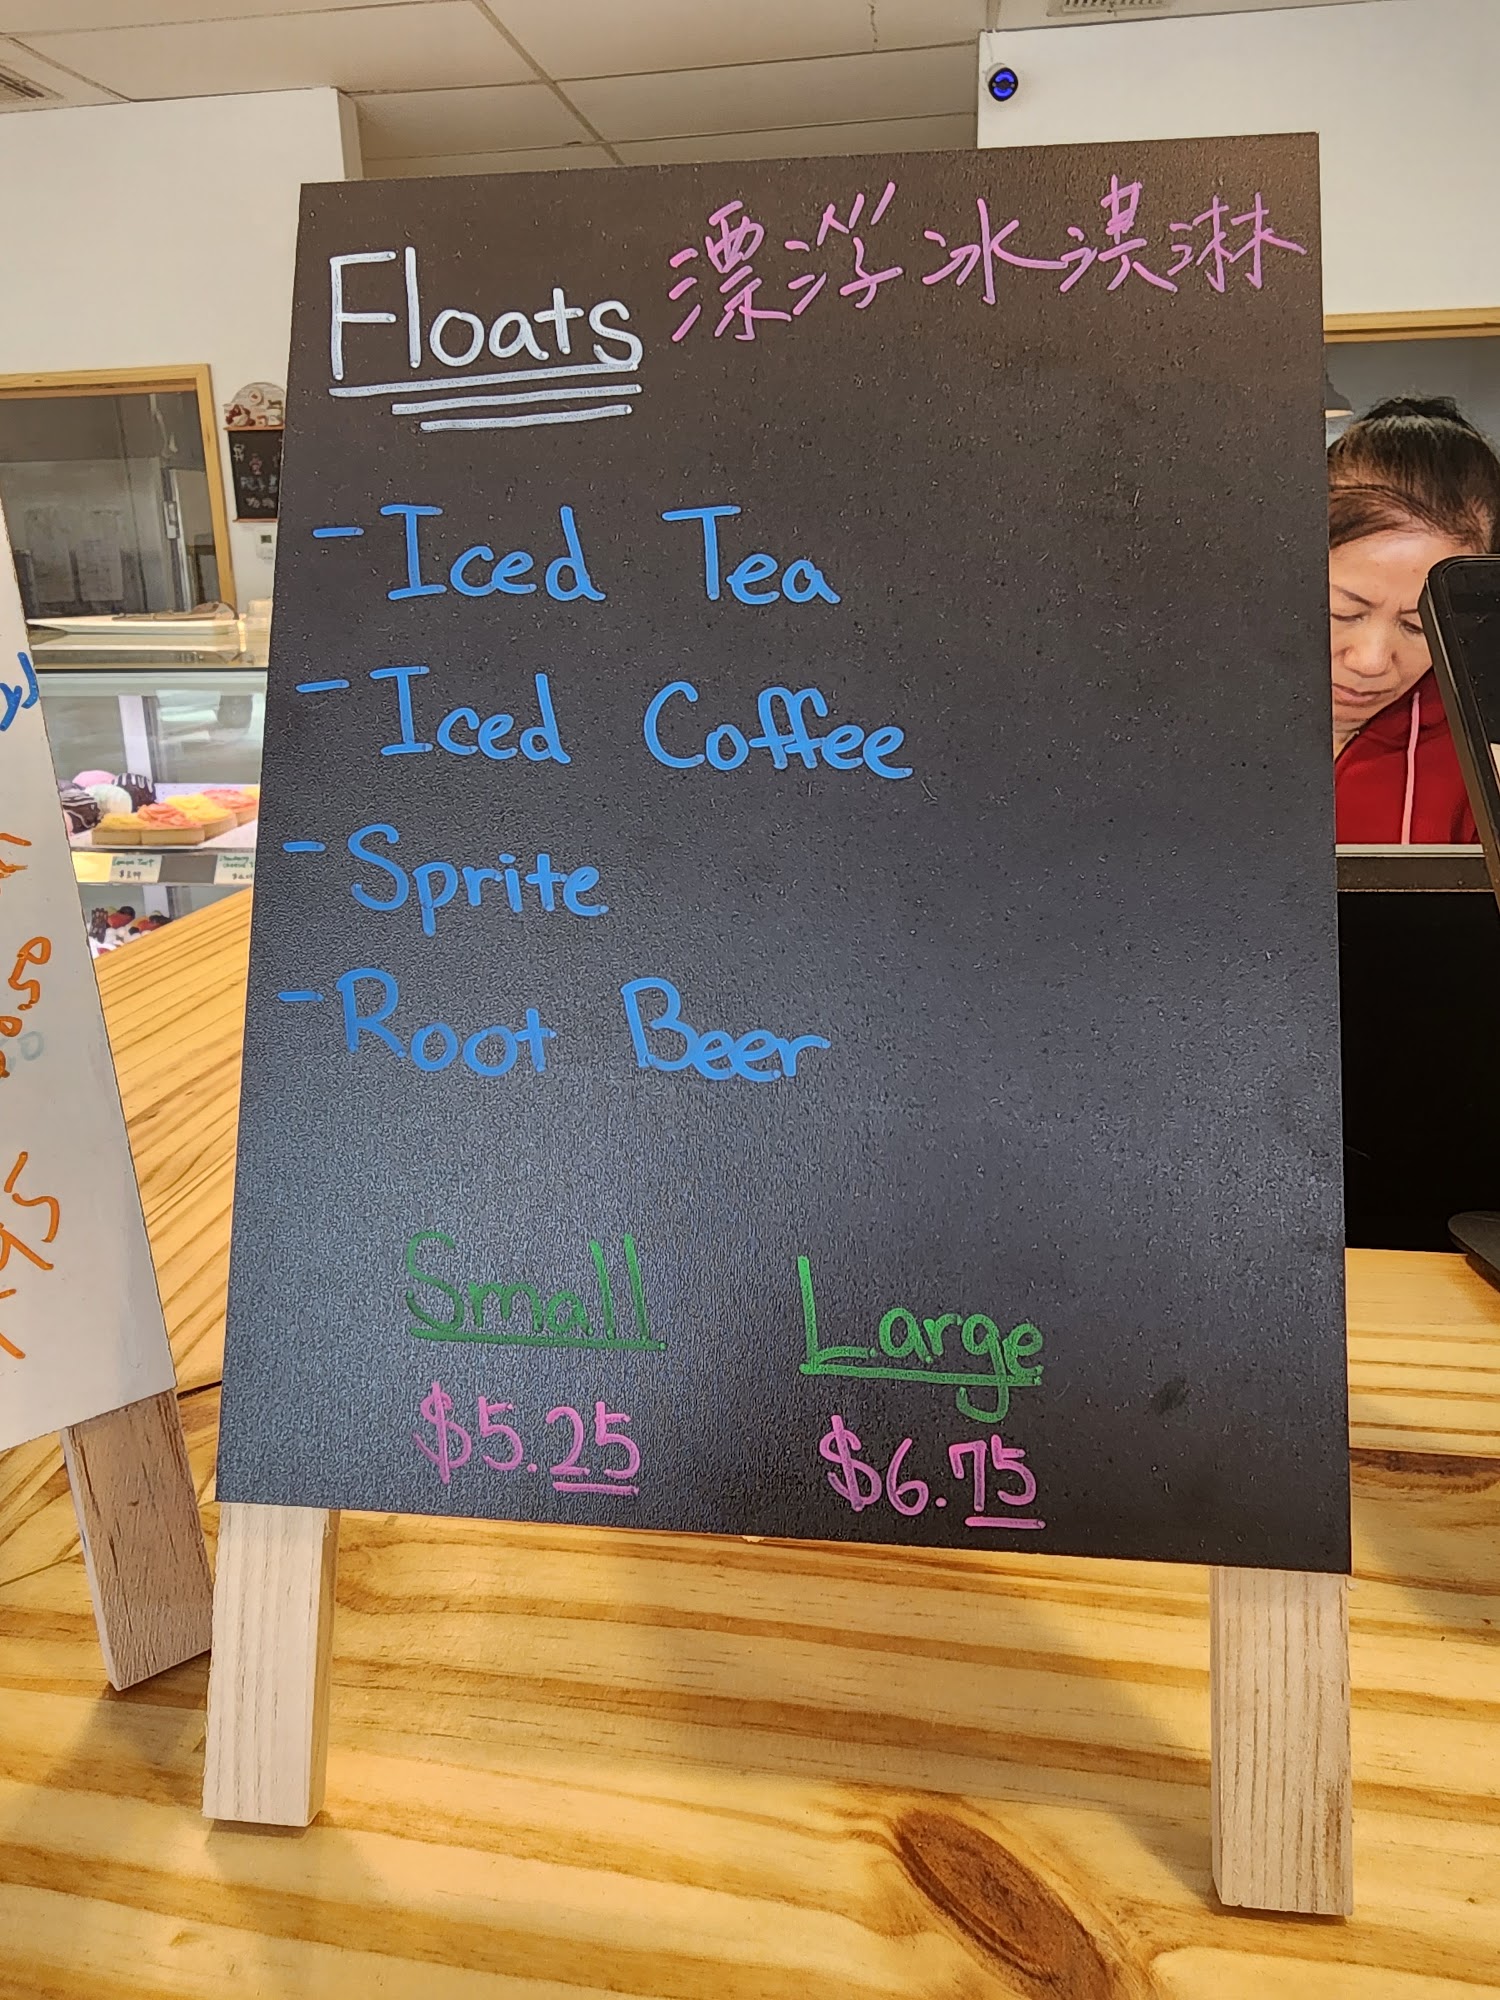 Floats 漂浮冰淇淋
- Iced Tea
- Iced Coffee
- Sprite
- Root Beer
Small Large
$5.25 $6.75
Lemon Tart